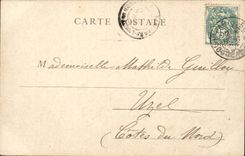 CARTE POSTALE
Mademoiselle Mathilde Guillou
Uzel
(Côtes du Nord)